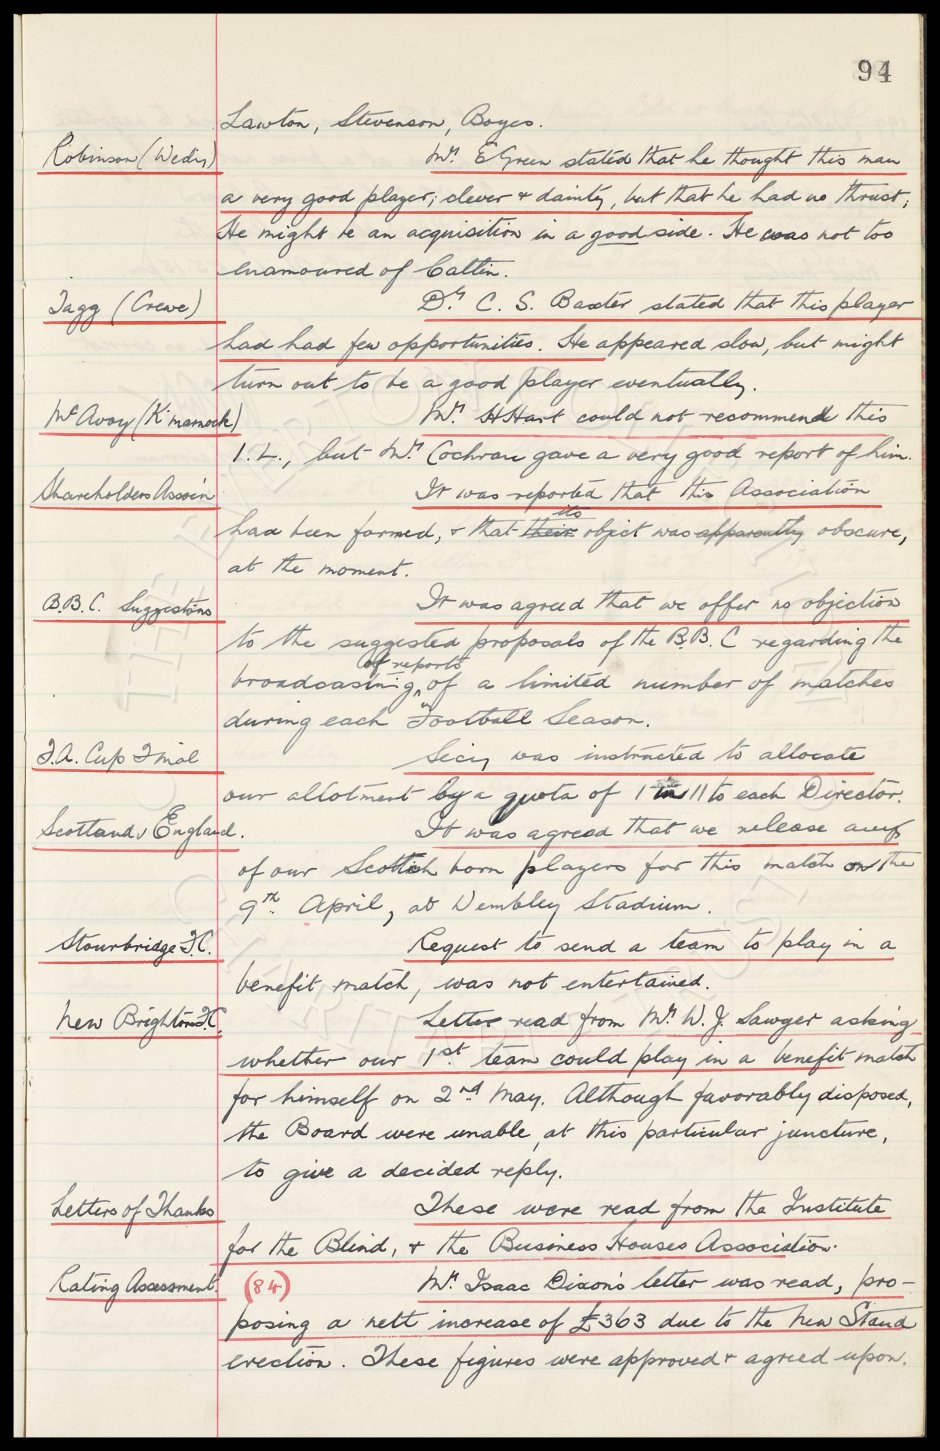 94
Lawton, Stevenson, Boyes.
Robinson (Wedny) Mr. E Green stated that he thought this man
a very good player; clever & dainty, but that he had no thrust;
He might be an acquisition in a good side. He was not too
enamoured of Catlin.
Tagg (Crewe) Dr. C. S. Baxter stated that this player
had had few opportunities. He appeared slow, but might
turn out to be a good player eventually.
McAvoy (K'marnock) Mr. H Hart could not recommend this
I.L., but Mr. Cochran gave a very good report of him.
Shareholders Assocn It was reported that this Association
its
had been formed, & that their object was apparently obscure,
at the moment.
B.B.C. Suggestions It was agreed that we offer no objection
to the suggested proposals of the B.B.C regarding the
of reports
broadcasing of a limited number of matches
during each Football Season.
F.A. Cup Final Secy was instructed to allocate
our allotment by a quota of 1 in 11 to each Director.
Scotland v England. It was agreed that we release any
of our Scottich born players for this match on the
9th. April, at Wembley Stadium.
Stourbridge F.C. Request to send a team to play in a
benefit match, was not entertained.
New Brighton F.C. Letter read from Mr. W. J. Sawyer asking
whether our 1st team could play in a benefit match
for himself on 2nd. May. Although favorably disposed,
the Board were unable, at this particular juncture,
to give a decided reply.
Letters of Thanks These were read from the Institute
for the Blind, & the Business Houses Association.
Rating Assessment. (84) Mr. Isaac Dixon's letter was read, pro-
posing a nett increase of £363 due to the New Stand
erection. These figures were approved & agreed upon.